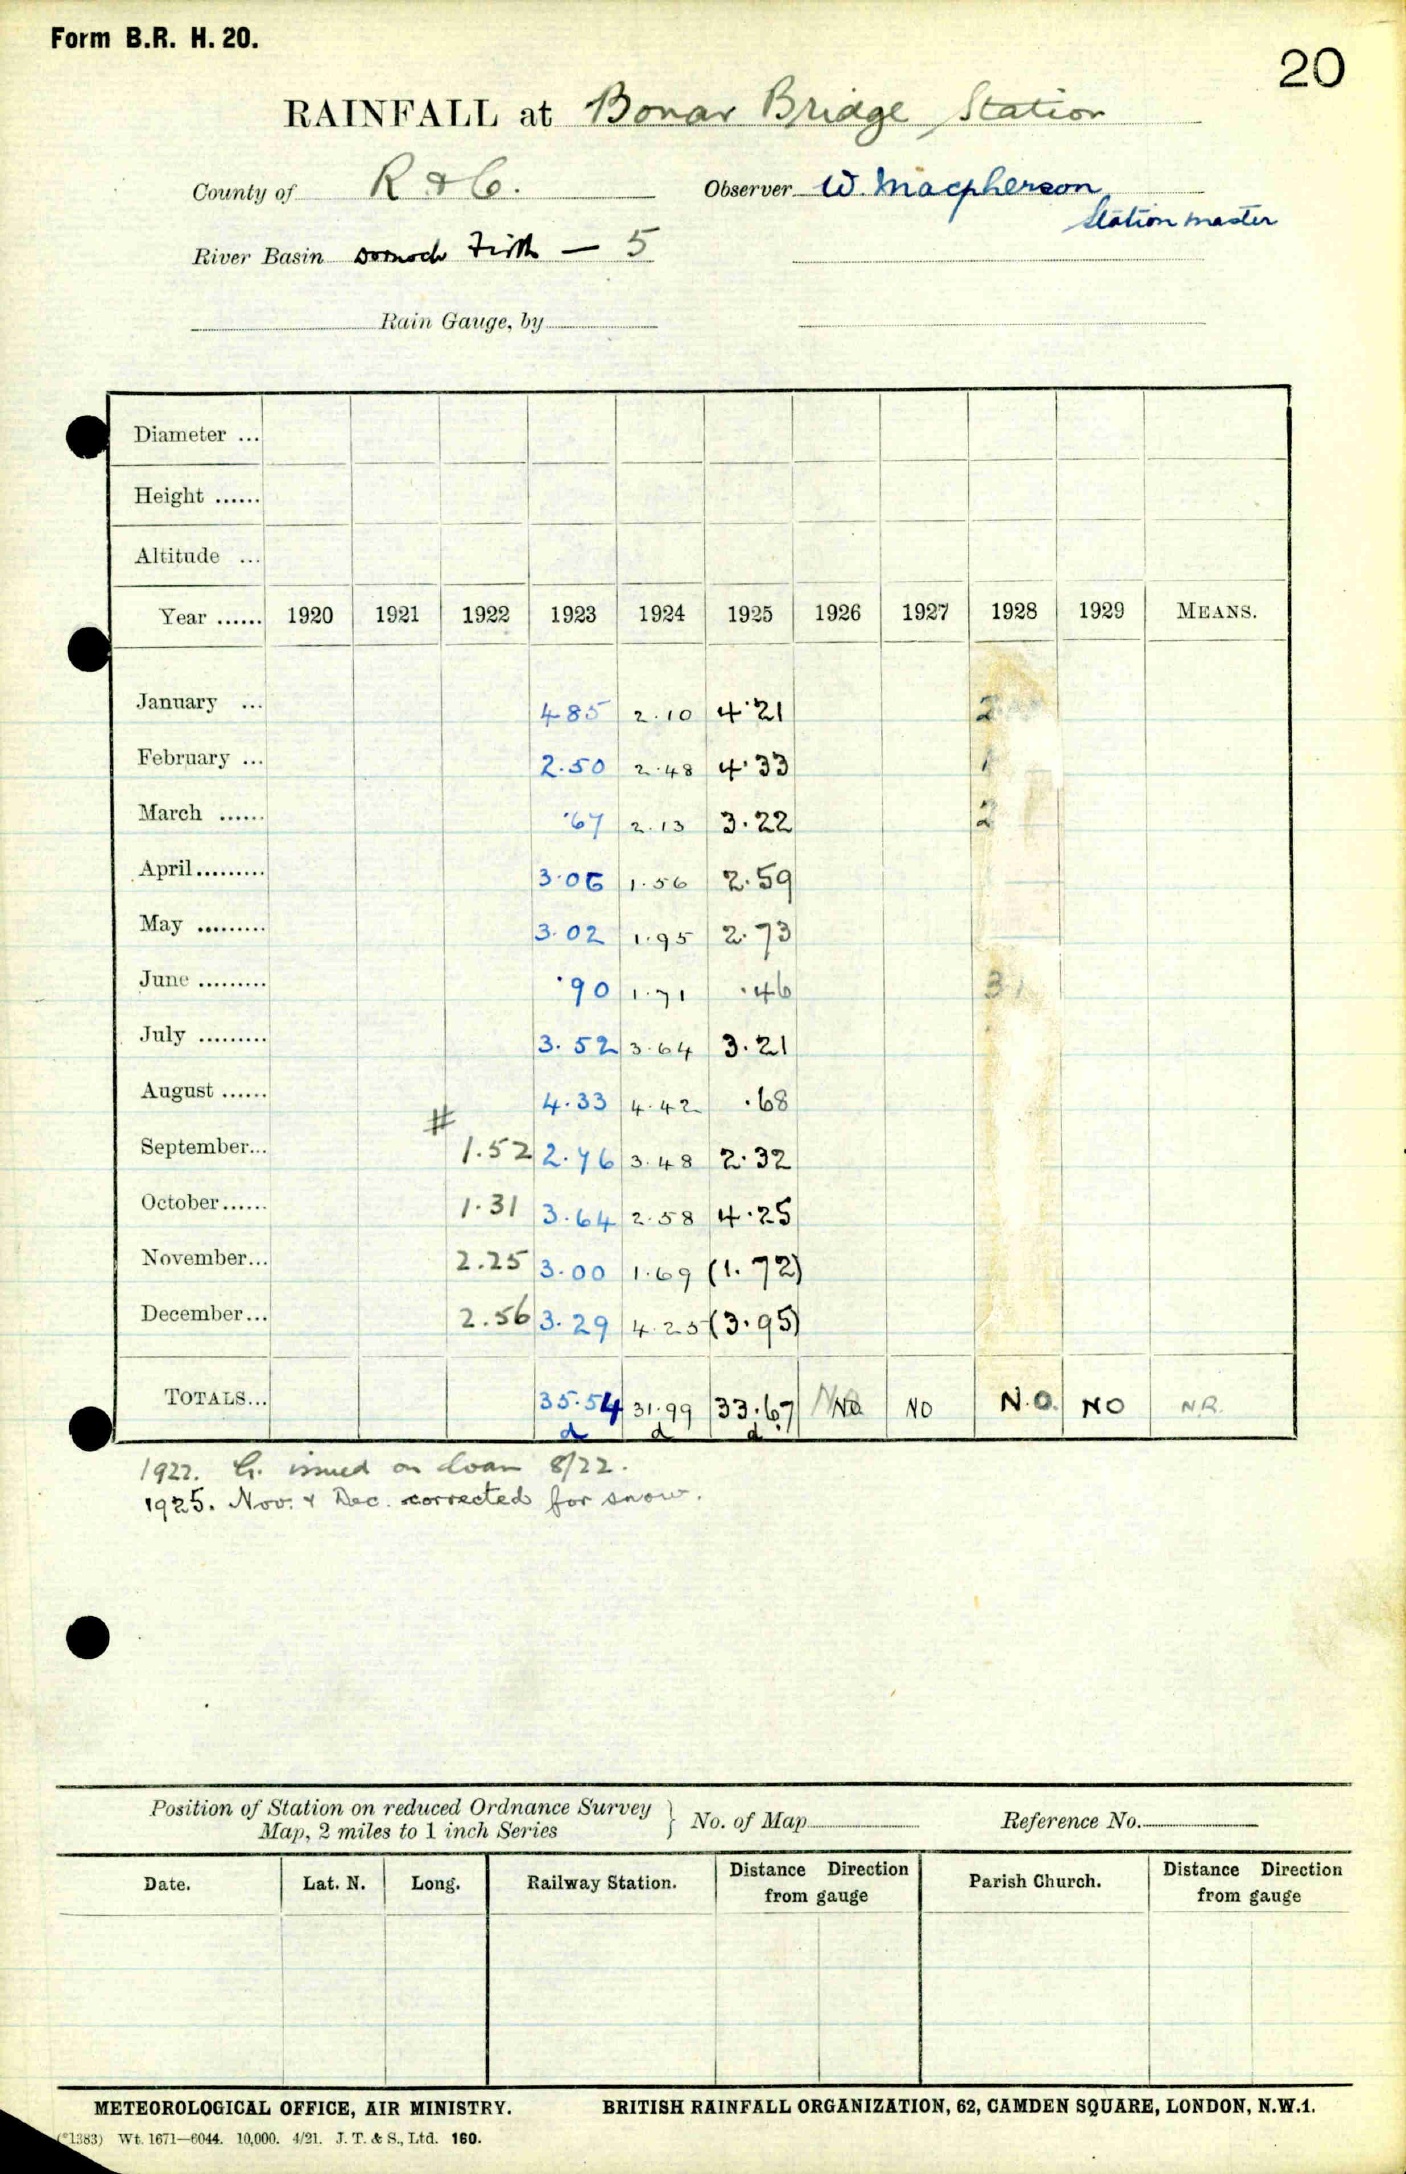 Form B.R. H. 20.
20
RAINFALL at Bonar Bridge Station
County of R & C. Observer W. Macpherson
Station master
River Basin Dornoch Firth — 5
Rain Gauge, by
Diameter ...
Height ......
Altitude ...
Year ...... 1920 1921 1922 1923 1924 1925 1926 1927 1928 1929 MEANS.
January ... 4 85 2.10 4.21 2
February ... 2.50 2.48 4.33 1
March ...... .67 2.13 3.22 2
April......... 3.06 1.56 2.59
May ......... 3.02 1.95 2.73
June ......... .90 1.71 .46 3
July ......... 3.52 3.64 3.21
August ...... 4.33 4.42 .68
#
September... 1.52 2.76 3.48 2.32
October...... 1.31 3.64 2.58 4.25
November... 2.25 3.00 1.69 (1.72)
December... 2.56 3.29 4.25 (3.95)
TOTALS... 35.54 31.99 33.67 NO NO N.O. NO N.R.
d d d
1922. G. issued on loan 8/22.
1925. Nov. & Dec. corrected for snow.
Position of Station on reduced Ordnance Survey
Map, 2 miles to 1 inch Series } No. of Map Reference No.
Date. Lat. N. Long. Railway Station. Distance Direction from gauge Parish Church. Distance Direction from gauge
METEOROLOGICAL OFFICE, AIR MINISTRY. BRITISH RAINFALL ORGANIZATION, 62, CAMDEN SQUARE, LONDON, N.W.1.
(*1383) Wt. 1671—6044. 10,000. 4/21. J. T. & S., Ltd. 160.